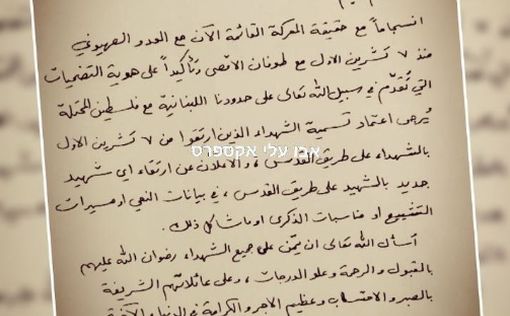 انسجاماً مع حقيقة المعركة القائمة الآن مع العدو الصهيوني
منذ ٧ تشرين الاول مع طوفان الاقصى وتأكيداً على هوية التضحيات
التي تُقدّم في سبيل الله تعالى على حدودنا اللبنانية مع فلسطين المحتلة
يُرجى اعتماد تسمية الشهداء الذين ارتقوا من ٧ تشرين الاول
بالشهداء على طريق القدس، والاعلان عن ارتقاء اي شهيد
אבו עלי אקספרס
جديد بالشهيد على طريق القدس، في بيانات النعي او مسيرات
التشييع او مناسبات الذكرى او ما شاكل ذلك.
أسأل الله تعالى ان يمنّ على جميع الشهداء رضوان الله عليهم
بالقبول والرحمة وعلو الدرجات، وعلى عائلاتهم الشريفة
بالصبر والاحتساب وعظيم الاجر والكرامة في الدنيا والآخرة